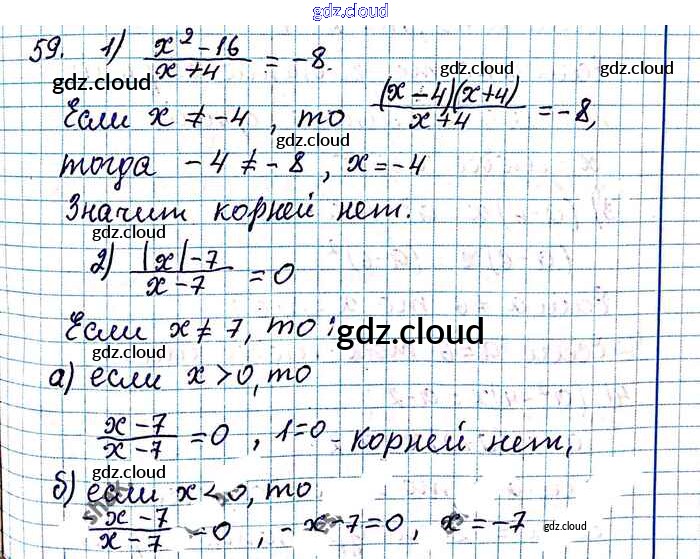 gdz.cloud
59. 1) (x² - 16)/(x + 4) = -8.
gdz.cloud
gdz.cloud
Если x ≠ -4, то ((x - 4)(x + 4))/(x + 4) = -8,
gdz.cloud
тогда -4 ≠ -8, x = -4
gdz.cloud
Значит корней нет.
gdz.cloud
2) (|x| - 7)/(x - 7) = 0
gdz.cloud
Если x ≠ 7, то:
gdz.cloud
gdz.cloud
а) если x > 0, то
gdz.cloud
(x - 7)/(x - 7) = 0, 1 = 0 - корней нет,
gdz.cloud
б) если x < 0, то
gdz.cloud
(-x - 7)/(x - 7) = 0, -x - 7 = 0, x = -7
gdz.cloud
gdz.cloud